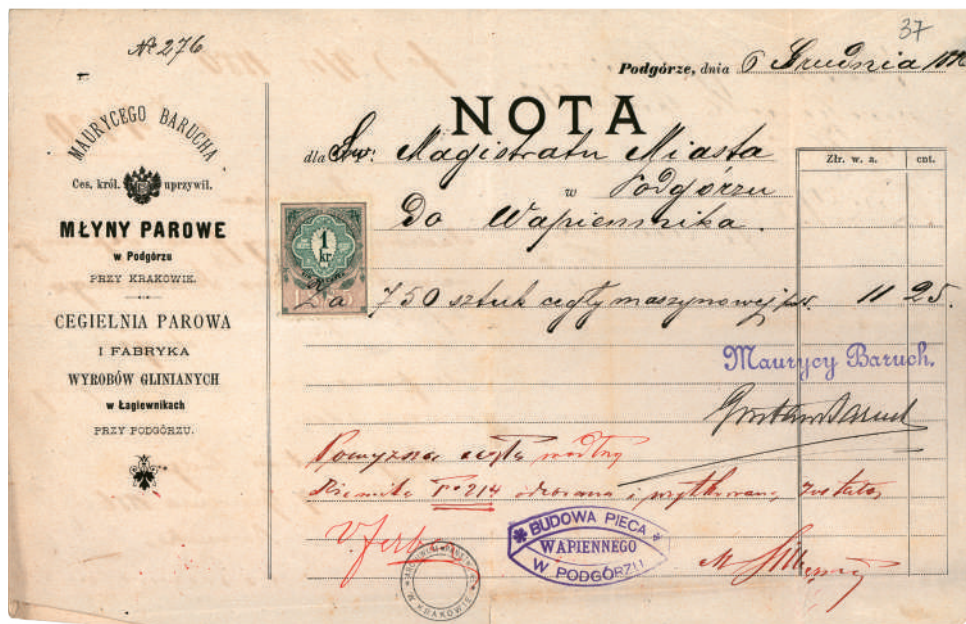 37
№ 276
Podgórze, dnia 6 Grudnia
MAURYCEGO BARUCHA
Ces. król. uprzywil.
MŁYNY PAROWE
w Podgórzu
PRZY KRAKOWIE.
CEGIELNIA PAROWA
I FABRYKA
WYROBÓW GLINIANYCH
w Łagiewnikach
PRZY PODGÓRZU.
NOTA
dla Św: Magistratu Miasta
w Podgórzu
Do Wapiennika.
Złr. w. a. cnt.
1
kr.
Za 750 sztuk cegły maszynowej 11 25.
Maurycy Baruch.
Gustaw Baruch
Powyższa cegła według
214 odebrana i została
BUDOWA PIECA
WAPIENNEGO
W PODGÓRZU
ARCHIWUM PAŃSTWOWE
W KRAKOWIE